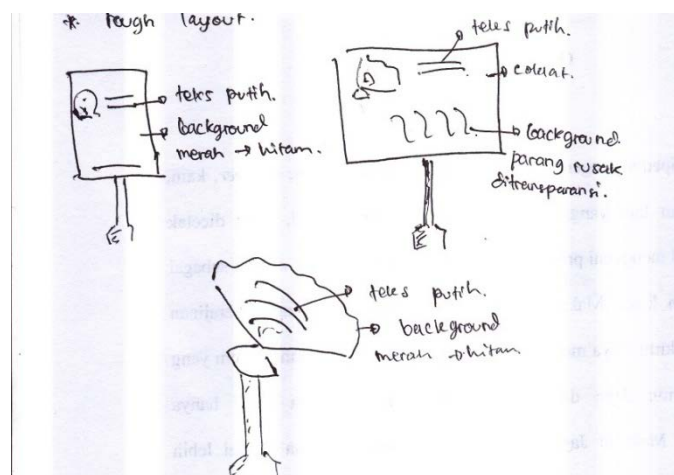 * rough layout.
teks putih.
background
merah → hitam.
teks putih.
coklat.
background
parang rusak
ditransparansi.
teks putih.
background
merah → hitam.